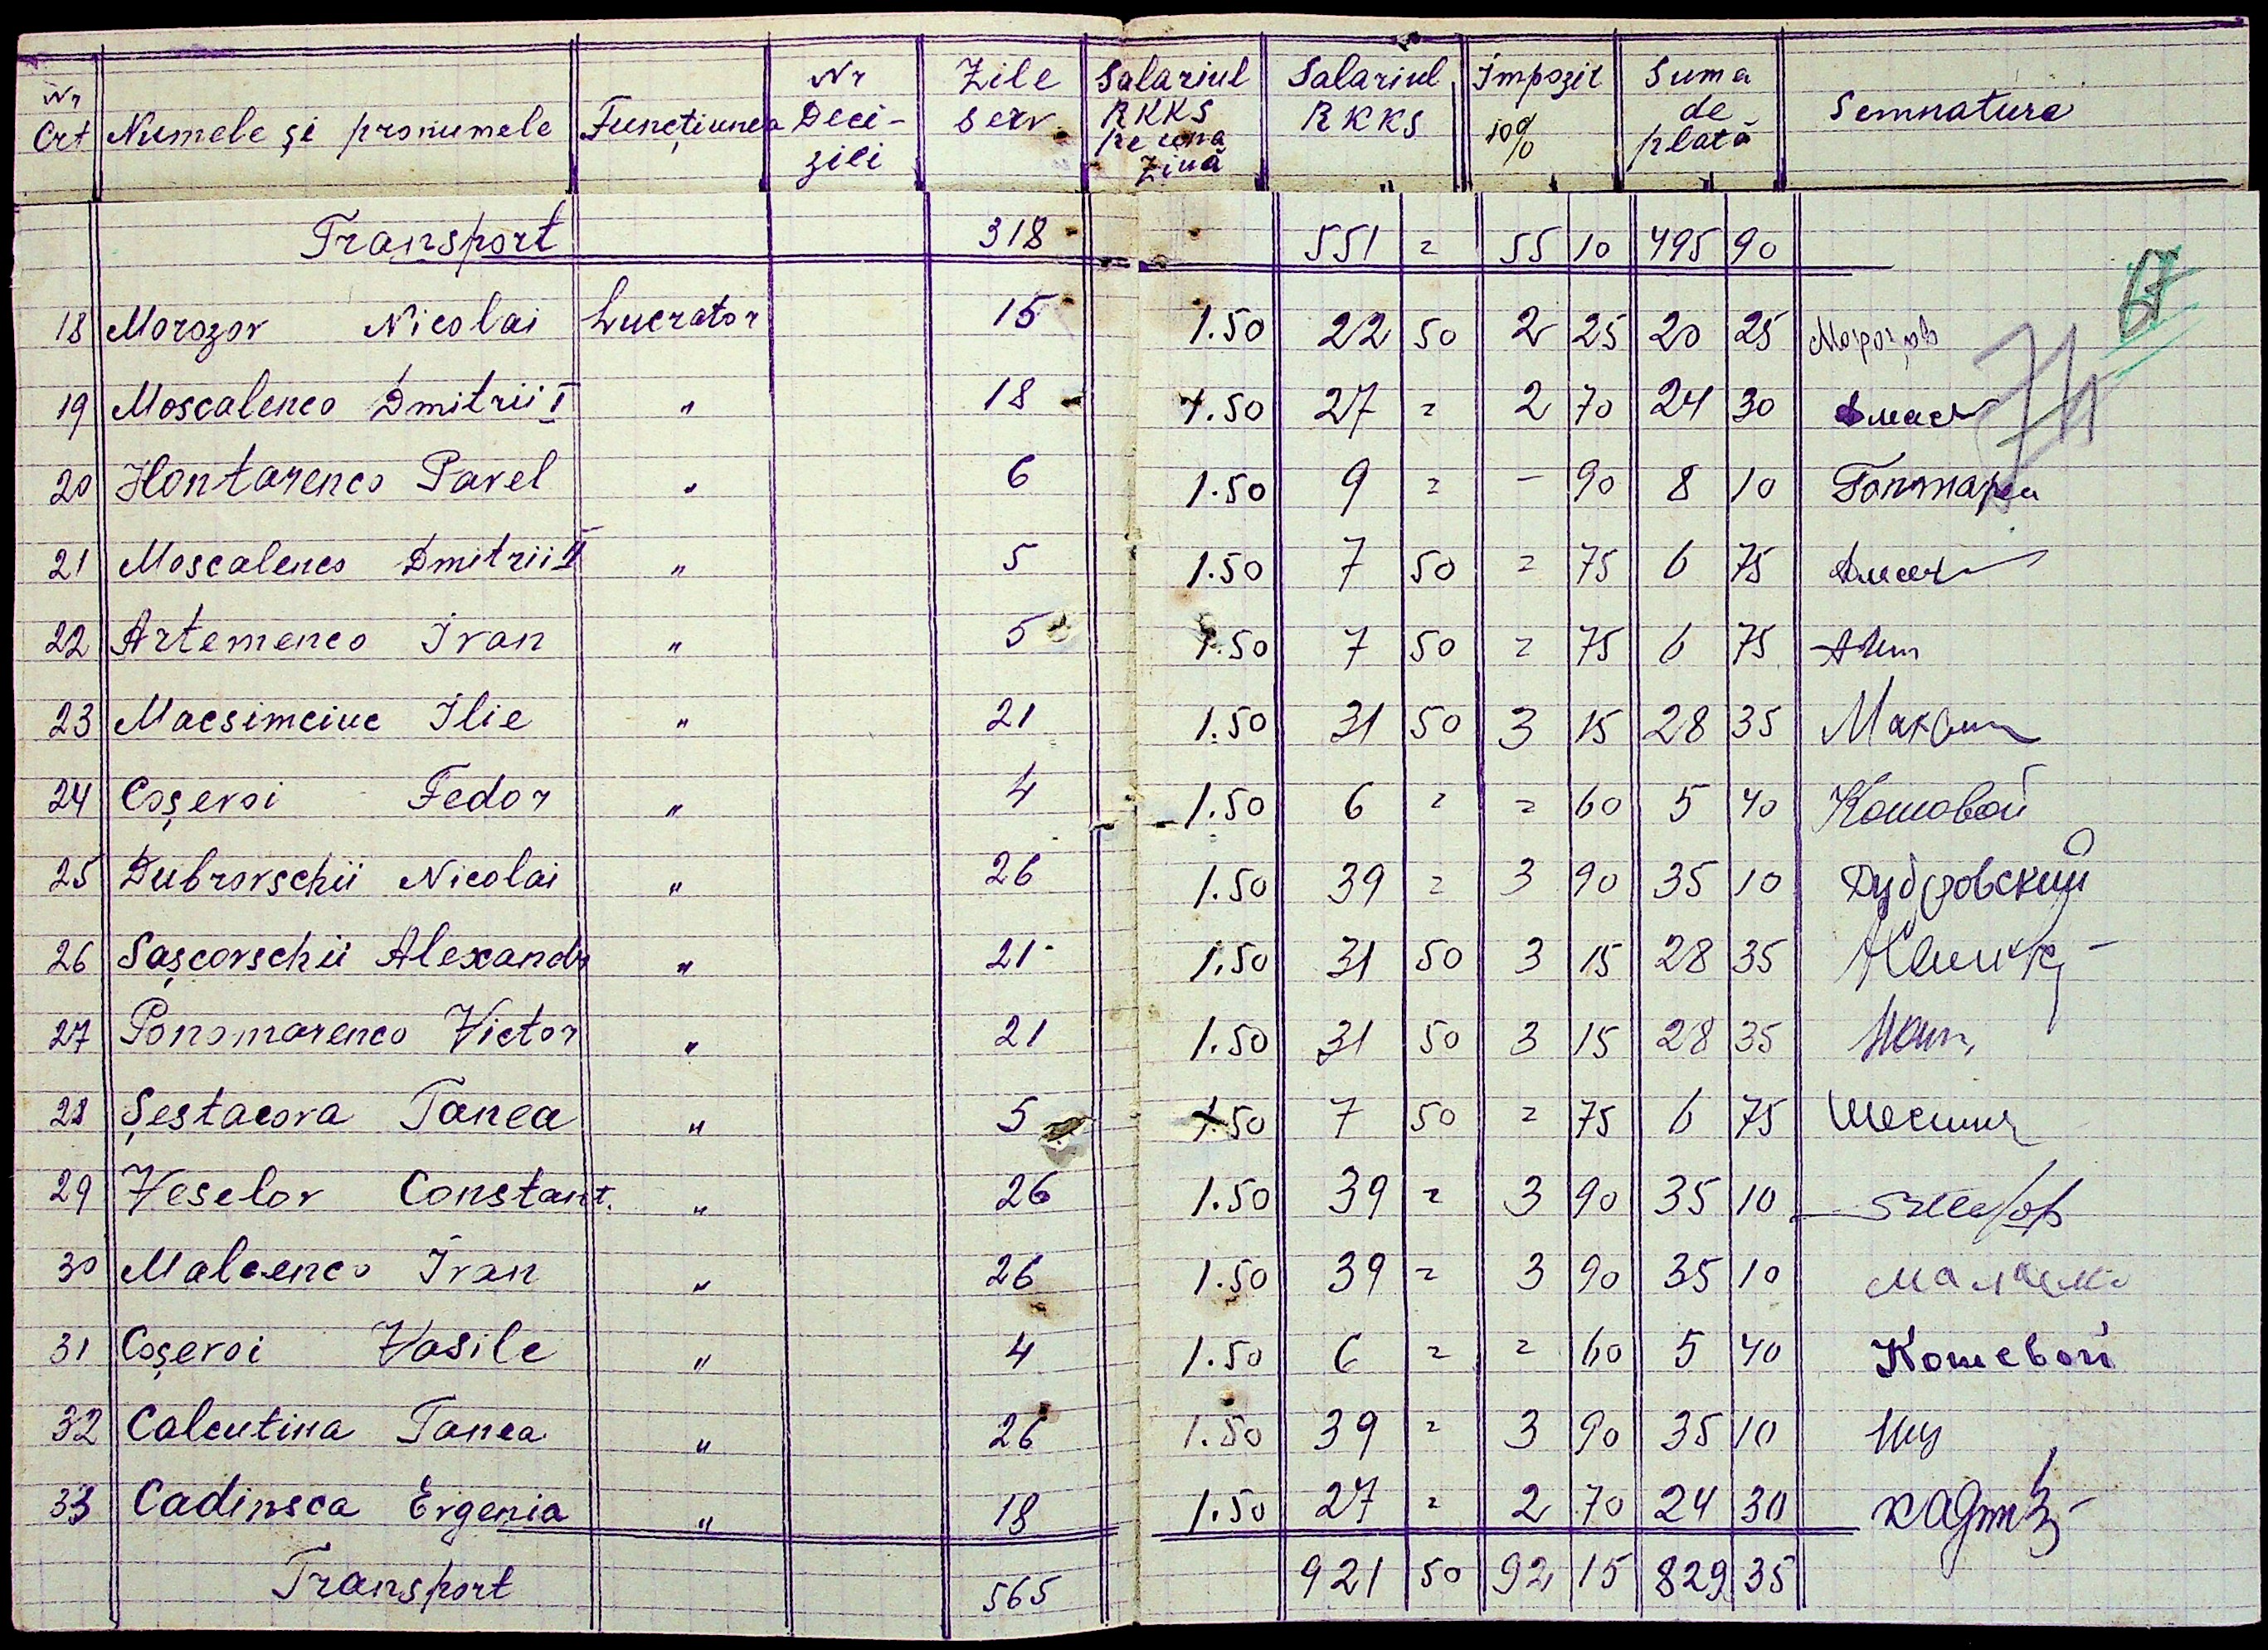 Nr Crt Numele și pronumele Funcțiunea Nr Deci-zili Zile serv. Salariul RKKS pe una ziuă Salariul RKKS Impozit 10% Suma de plată Semnatura
Transport 318 551 = 55 10 495 90
67
74
18 Morozov Nicolai Lucrator 15 1.50 22 50 2 25 20 25 Морозов
19 Moscalenco Dmitrii I " 18 1.50 27 = 2 70 24 30
20 Hontarenco Pavel " 6 1.50 9 = - 90 8 10
21 Moscalenco Dmitrii II " 5 1.50 7 50 = 75 6 75
22 Artemenco Ivan " 5 1.50 7 50 = 75 6 75
23 Macsimciuc Ilie " 21 1.50 31 50 3 15 28 35
24 Coșevoi Fedor " 4 1.50 6 = = 60 5 40 Кошовой
25 Dubrovschii Nicolai " 26 1.50 39 = 3 90 35 10 Дубровский
26 Sașcovschii Alexandr " 21 1.50 31 50 3 15 28 35
27 Ponomarenco Victor " 21 1.50 31 50 3 15 28 35
28 Șestacova Tanea " 5 1.50 7 50 = 75 6 75
29 Veselov Constant. " 26 1.50 39 = 3 90 35 10
30 Malcenco Ivan " 26 1.50 39 = 3 90 35 10
31 Coșevoi Vasile " 4 1.50 6 = = 60 5 40 Кошевой
32 Calcutina Tanea " 26 1.50 39 = 3 90 35 10
33 Cadinsca Evgenia " 18 1.50 27 = 2 70 24 30
Transport 565 921 50 92 15 829 35